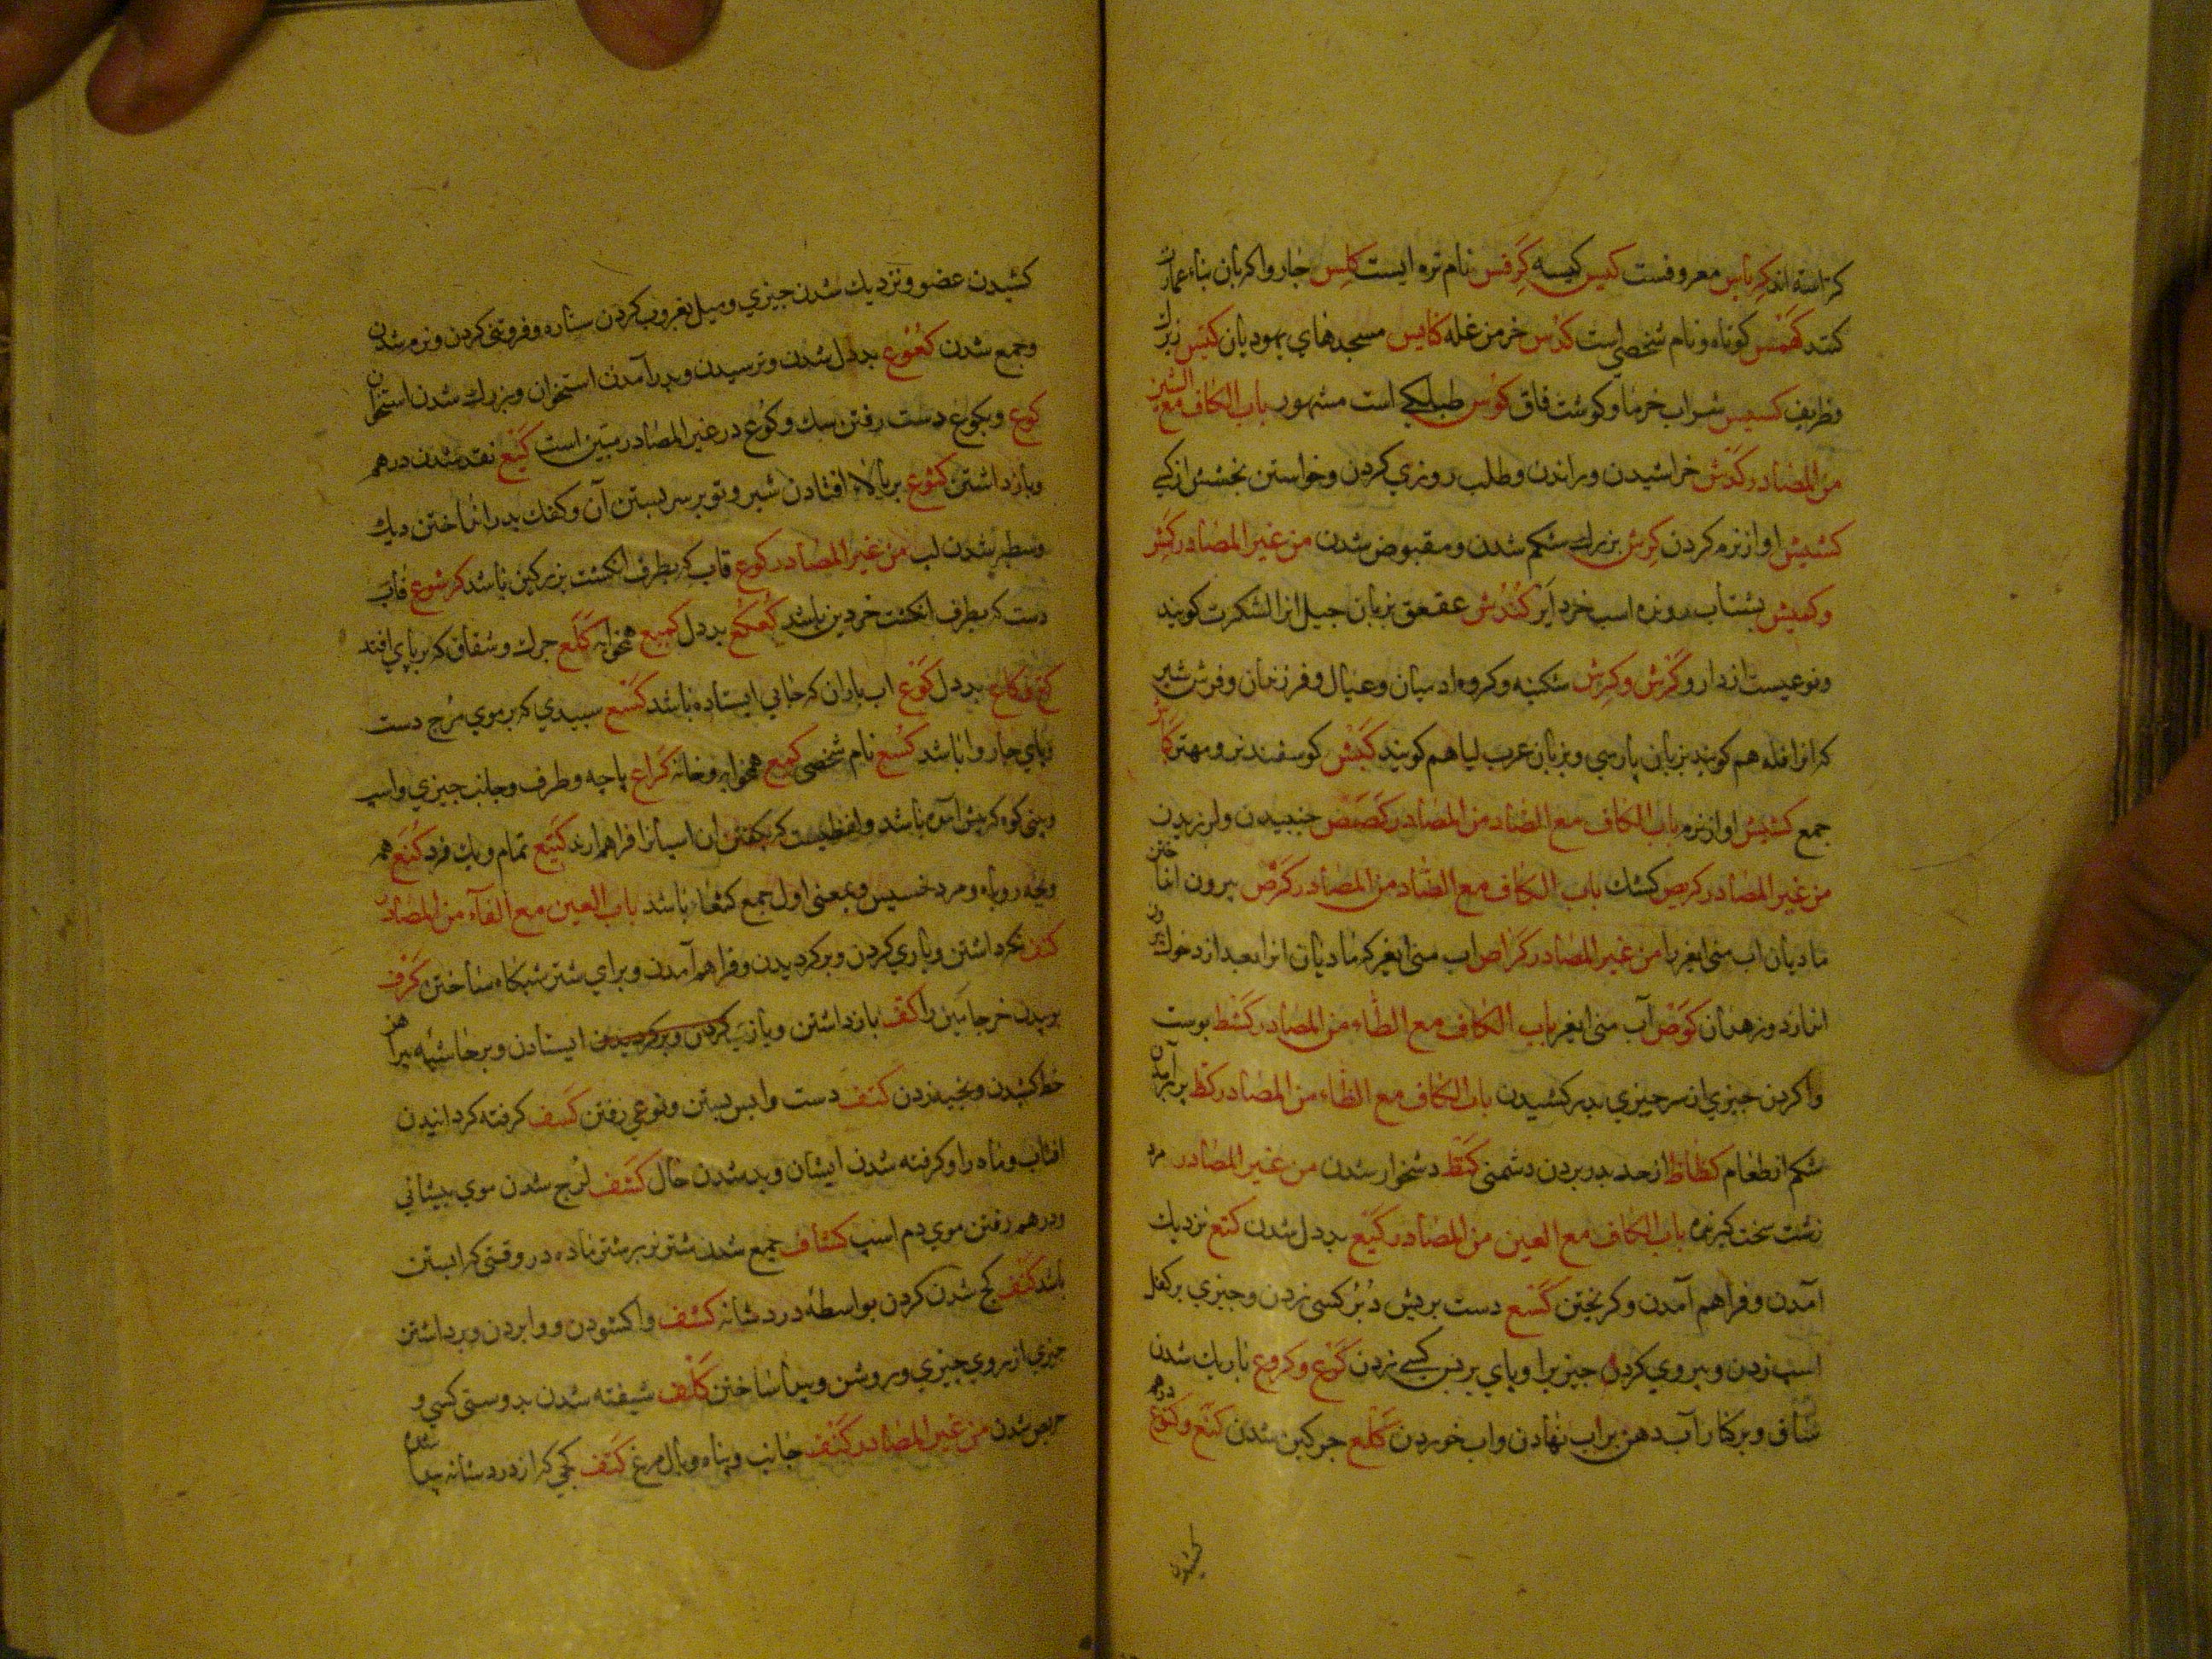 کراسته اند کرباس معروفست کیس کیسه کرفس نام تره ایست کلس جاروا کربان بناء عمارت
کنند کهمس کوتاه و نام شخصی است کدس خرمن غله کنایس مسجدهای یهودیان کیس زیرك
وظریف کسیس شراب خرما و کوشت قاق کوس طبلکی است مشهور باب الکاف مع الشین
من المصادر کدش خراشیدن وراندن وطلب روزی کردن وخواستن بخشش از کسی
کشیش اواز نرم کردن کرش بزرك شکم شدن ومقبوض شدن من غیر المصادر
وکمیش بشتاب رونده اسب خرد ایر کندش عقعق بزبان جیل انرا لشکرت کویند
ونوعیست از دارو کرش وکرش شکنبه وکروه ادمیان وعیال وفرزندان وفرش شابیر
که انرا فله هم کویند بزبان پارسی وبزبان عرب لیا هم کویند کبش کوسفند نر ومهتر
جمع کشیش اواز نرم باب الکاف مع الصاد من المصادر کصیص جنبیدن ولرزیدن
من غیر المصادر کریص کشك باب الکاف مع الضاد من المصادر کرض بیرون انداختن
مادیان اب منی ایغر را من غیر المصادر کراض اب منی ایغر که مادیان انرا بعد از دخول بیرون
اندازد ونرهدان کوض آب منی ایغر باب الکاف مع الطاء من المصادر کشط پوست
واکردن چیزی از سر چیزی بدر کشیدن باب الکاف مع الظاء من المصادر کظ برآمدن
شکم از طعام کظاظ از حد بدر بردن دشمنی کنظ دشخوار شدن من غیر المصادر مرد
زشت سخت کیرنده باب الکاف مع العین من المصادر کیع بد دل شدن کنع نزدیك
آمدن وفراهم آمدن وکریختن کسع دست بر پیش دبر کسی زدن وچیزی بر کفل
اسب زدن وپیروی کردن چیزیرا وپای بر پس کسی زدن کرع وکروع باریك شدن
ساق وبر کنار آب دهن بر اب نهادن واب خوردن کلع چرکین شدن کنع وکنوع درهم
کشیدن
کشیدن عضو ونزدیك شدن چیزی ومیل بغروب کردن ستاره وفروتنی کردن ونرم شدن
وجمع شدن کعوع بد دل شدن وترسیدن وبدرآمدن استخوان وبزرك شدن استخوان
کوع وبکوع دست رفتن سك وکوع در غیر المصادر مبین است کنیع نقد شدن درهم
وبازداشتن کثوع بر بالاء افتادن شیر وتوبر سر بستن آن وکفك بدر انداختن دیك
وسطبر شدن لب من غیر المصادر کوع قاب که بطرف انکشت بزرکین باشد کرسوع قاب
دست که بطرف انکشت خردین باشد کعکع بد دل کمیع همخوابه کلع چرك وشقاق که بر پای افتد
کع وکاع بد دل کرع اب باران که جایی ایستاده باشد کسع سپیدی که بر موی برج دست
وپای چاروا باشد کسع نام شخصی کمع همخوابه وخانه کراع پاچه وطرف وجانب چیزی واسپ
وبینی کوه که پیش آمده باشد ولفظیست که بکفتن ان اسپانرا فراهم ارند کتیع تمام ویك فرد کتع همه
وبچه روباه ومرد خسیس وبمعنی اول جمع کتعاء باشد باب العین مع الفآء من المصادر
کنف نکه داشتن ویاری کردن وبرکردیدن وفراهم آمدن وبرای شتر شبکاه ساختن کرف
بوییدن خر جامین را کف بازداشتن وبازپ کردن وبرکردیدن ایستادن وبر حاشیه پیراهن
خط کشیدن وبخیه زدن کتف دست وا پس بستن ونوعی رفتن کسف کرفته کردانیدن
افتاب وماه را وکرفته شدن ایشان وبد شدن حال کشف لزج شدن موی پیشانی
ودرهم رفتن موی دم اسپ کشاف جمع شدن شتر نر بر شتر ماده در وقتی که ابستن
باشد کتف کج شدن کردن بواسطه درد شانه کشف واکشودن ووابردن وبرداشتن
چیزی از روی چیزی وروشن وپیدا ساختن کلف شیفته شدن بدوستی کسی و
حریص شدن من غیر المصادر کنف جانب وپناه وبال مرغ کتف کجی که از درد شانه پیدا شده